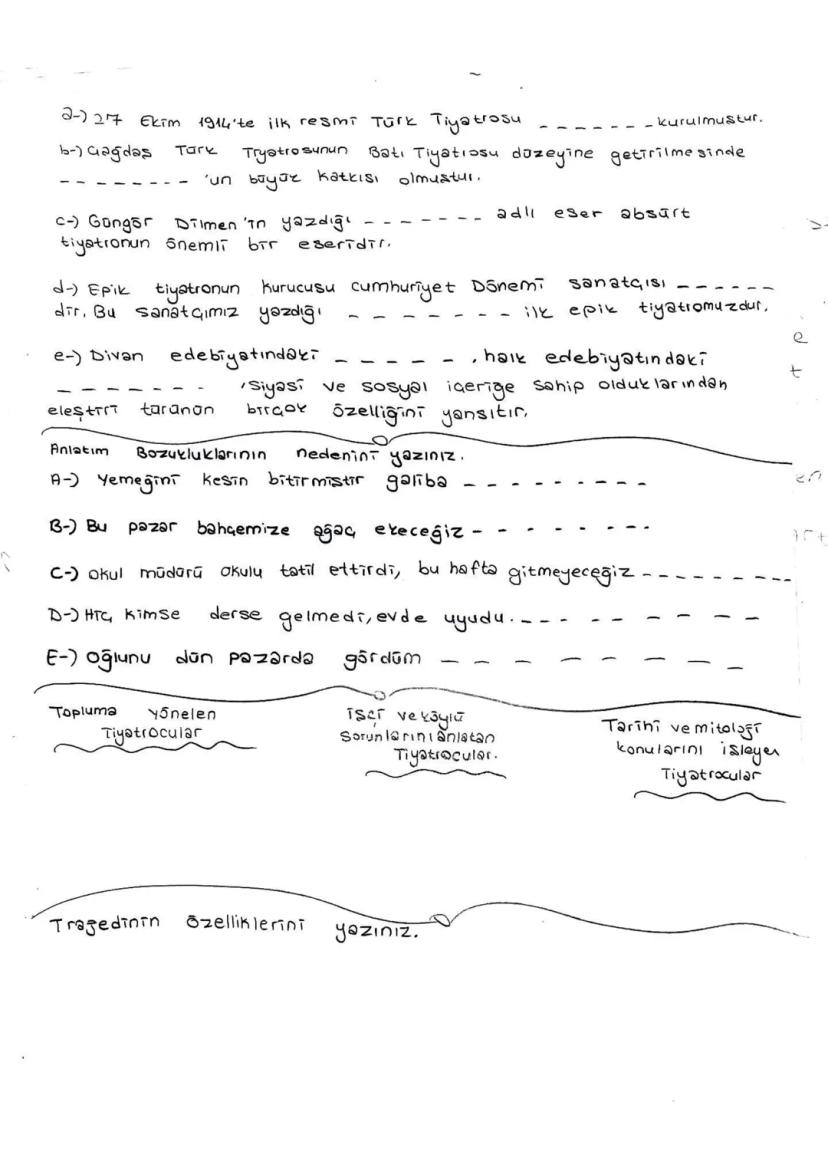 a-) 27 Ekim 1914'te ilk resmi Türk Tiyatrosu _ _ _ _ _ _ _ kurulmuştur.
b-) Çağdaş Türk Tiyatrosunun Batı Tiyatrosu düzeyine getirilmesinde
_ _ _ _ _ _ _ _ 'un büyük katkısı olmuştur.
c-) Güngör Dilmen'in yazdığı _ _ _ _ _ _ _ adlı eser absürt
tiyatronun önemli bir eseridir.
d-) Epik tiyatronun kurucusu cumhuriyet Dönemi sanatçısı _ _ _ _ _ _
dir. Bu sanatçımız yazdığı _ _ _ _ _ _ _ ilk epik tiyatromuzdur.
e-) Divan edebiyatındaki _ _ _ _ _ , halk edebiyatındaki
_ _ _ _ _ _ _ , siyasi ve sosyal içeriğe sahip olduklarından
eleştiri türünün birçok özelliğini yansıtır.
Anlatım Bozukluklarının nedenini yazınız.
A-) Yemeğini kesin bitirmiştir galiba _ _ _ _ _ _ _ _ _
B-) Bu pazar bahçemize ağaç ekeceğiz - - - - - - - - -
C-) okul müdürü okulu tatil ettirdi, bu hafta gitmeyeceğiz _ _ _ _ _ _ _ _ _ _
D-) Hiç kimse derse gelmedi, evde uyudu. _ _ _ _ _ _ _ _ _
E-) Oğlunu dün pazarda gördüm _ _ _ _ _ _ _ _
Topluma Yönelen
Tiyatrocular
işçi ve köylü
Sorunlarını anlatan
Tiyatrocular.
Tarihi ve mitoloji
konularını işleyen
Tiyatrocular
Trajedinin özelliklerini yazınız.